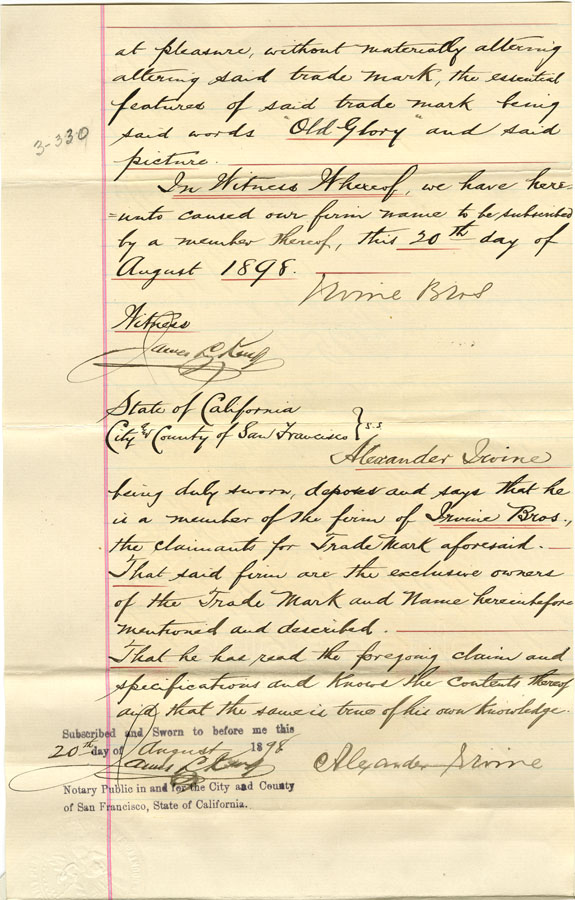 at pleasure, without materially altering
altering said trade mark, the essential
features of said trade mark being
said words "Old Glory" and said
3-330
picture.
In Witness Whereof, we have here=
=unto caused our firm name to be subscribed
by a member thereof, this 20th day of
August 1898.
Irvine Bros
Witness
James L. King
State of California
City & County of San Francisco } s.s.
Alexander Irvine
being duly sworn, deposes and says that he
is a member of the firm of Irvine Bros.,
the claimants for Trade Mark aforesaid.
That said firm are the exclusive owners
of the Trade Mark and Name hereinbefore
mentioned and described.
That he has read the foregoing claim and
specifications and knows the contents thereof
and that the same is true of his own knowledge.
Subscribed and Sworn to before me this
20th day of August 1898
James L. King
Alexander Irvine
Notary Public in and for the City and County
of San Francisco, State of California.